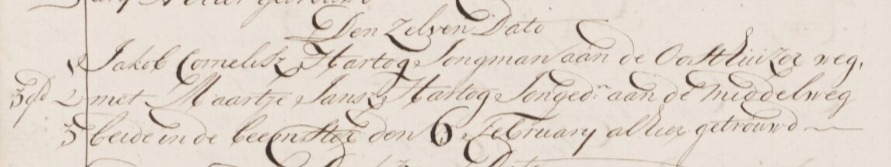 Den Zelven Dato
1 Jakob Cornelisz Hartog Jongman aan de Oosthuizer weg,
2 met Maartje Jansz Hartog Jongedr aan de middelweg
3 beide in de beemster den 6 February alhier getrouwd